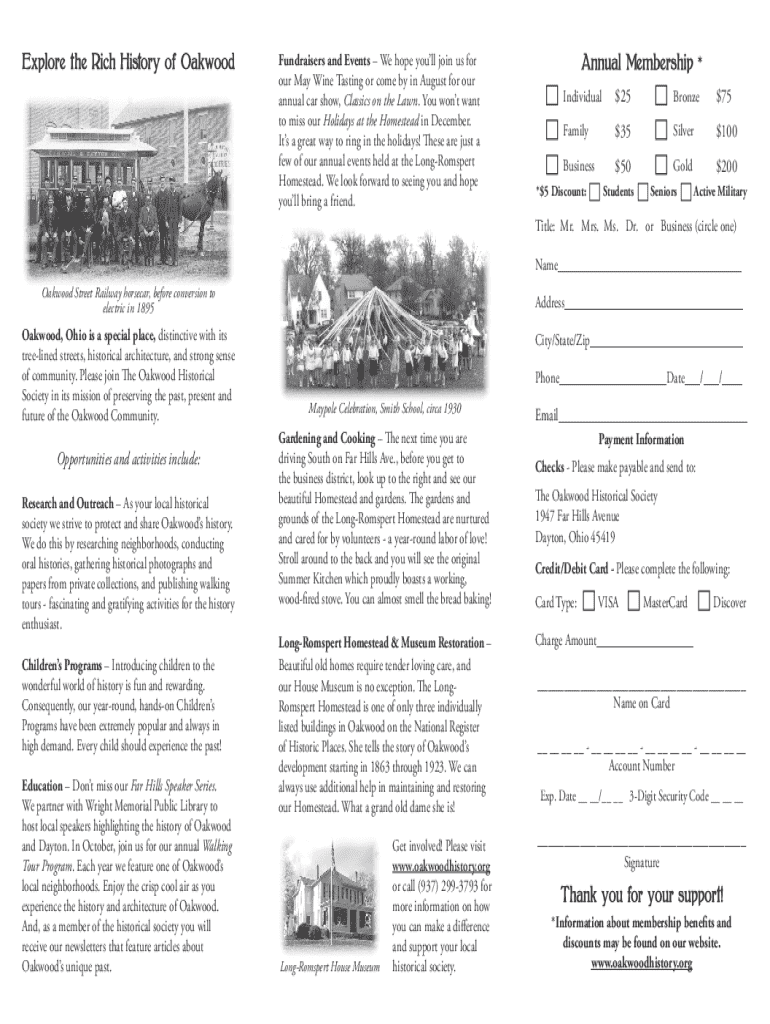 Explore the Rich History of Oakwood
Oakwood Street Railway horsecar, before conversion to
electric in 1895
Oakwood, Ohio is a special place, distinctive with its
tree-lined streets, historical architecture, and strong sense
of community. Please join The Oakwood Historical
Society in its mission of preserving the past, present and
future of the Oakwood Community.
Opportunities and activities include:
Research and Outreach – As your local historical
society we strive to protect and share Oakwood's history.
We do this by researching neighborhoods, conducting
oral histories, gathering historical photographs and
papers from private collections, and publishing walking
tours - fascinating and gratifying activities for the history
enthusiast.
Children's Programs – Introducing children to the
wonderful world of history is fun and rewarding.
Consequently, our year-round, hands-on Children's
Programs have been extremely popular and always in
high demand. Every child should experience the past!
Education – Don't miss our Far Hills Speaker Series.
We partner with Wright Memorial Public Library to
host local speakers highlighting the history of Oakwood
and Dayton. In October, join us for our annual Walking
Tour Program. Each year we feature one of Oakwood's
local neighborhoods. Enjoy the crisp cool air as you
experience the history and architecture of Oakwood.
And, as a member of the historical society you will
receive our newsletters that feature articles about
Oakwood's unique past.
Fundraisers and Events – We hope you'll join us for
our May Wine Tasting or come by in August for our
annual car show, Classics on the Lawn. You won't want
to miss our Holidays at the Homestead in December.
It's a great way to ring in the holidays! These are just a
few of our annual events held at the Long-Romspert
Homestead. We look forward to seeing you and hope
you'll bring a friend.
Maypole Celebration, Smith School, circa 1930
Gardening and Cooking – The next time you are
driving South on Far Hills Ave., before you get to
the business district, look up to the right and see our
beautiful Homestead and gardens. The gardens and
grounds of the Long-Romspert Homestead are nurtured
and cared for by volunteers - a year-round labor of love!
Stroll around to the back and you will see the original
Summer Kitchen which proudly boasts a working,
wood-fired stove. You can almost smell the bread baking!
Long-Romspert Homestead & Museum Restoration –
Beautiful old homes require tender loving care, and
our House Museum is no exception. The Long-
Romspert Homestead is one of only three individually
listed buildings in Oakwood on the National Register
of Historic Places. She tells the story of Oakwood's
development starting in 1863 through 1923. We can
always use additional help in maintaining and restoring
our Homestead. What a grand old dame she is!
Long-Romspert House Museum
Get involved! Please visit
www.oakwoodhistory.org
or call (937) 299-3793 for
more information on how
you can make a difference
and support your local
historical society.
Annual Membership *
Individual $25 Bronze $75
Family $35 Silver $100
Business $50 Gold $200
*$5 Discount: Students Seniors Active Military
Title: Mr. Mrs. Ms. Dr. or Business (circle one)
Name
Address
City/State/Zip
Phone Date / /
Email
Payment Information
Checks - Please make payable and send to:
The Oakwood Historical Society
1947 Far Hills Avenue
Dayton, Ohio 45419
Credit/Debit Card - Please complete the following:
Card Type: VISA MasterCard Discover
Charge Amount
Name on Card
Account Number
Exp. Date __ __/__ __ 3-Digit Security Code __ __ __
Signature
Thank you for your support!
*Information about membership benefits and
discounts may be found on our website.
www.oakwoodhistory.org